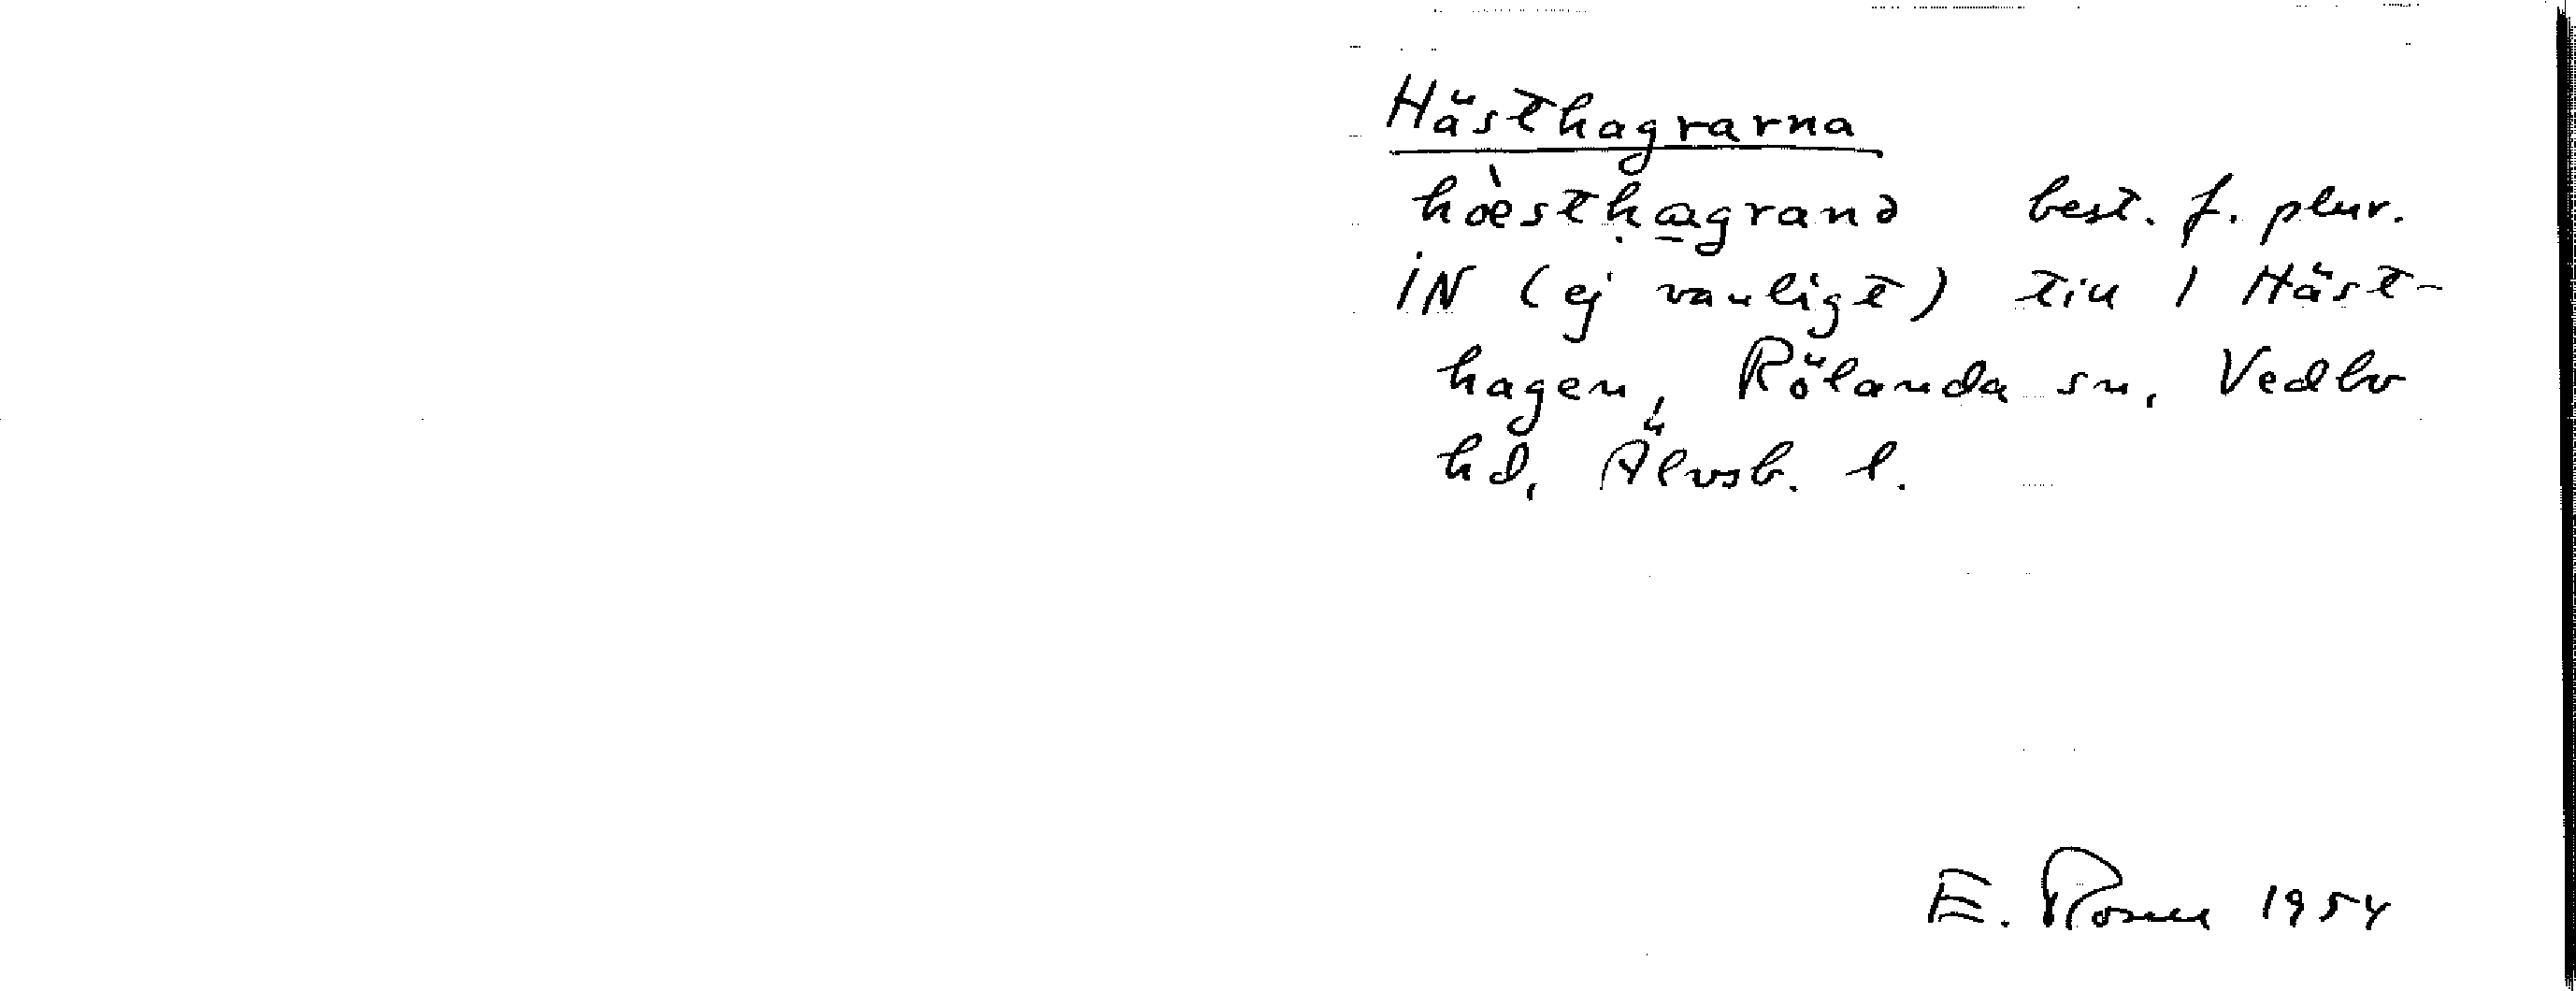 Hästhagrarna
hæ̀stḥa̲granə best. f. plur.
iN (ej vanligt) till 1 Häst-
hagen, Rölanda sn, Vedbo
hd, Älvsb. l.
E. Rosell 1954